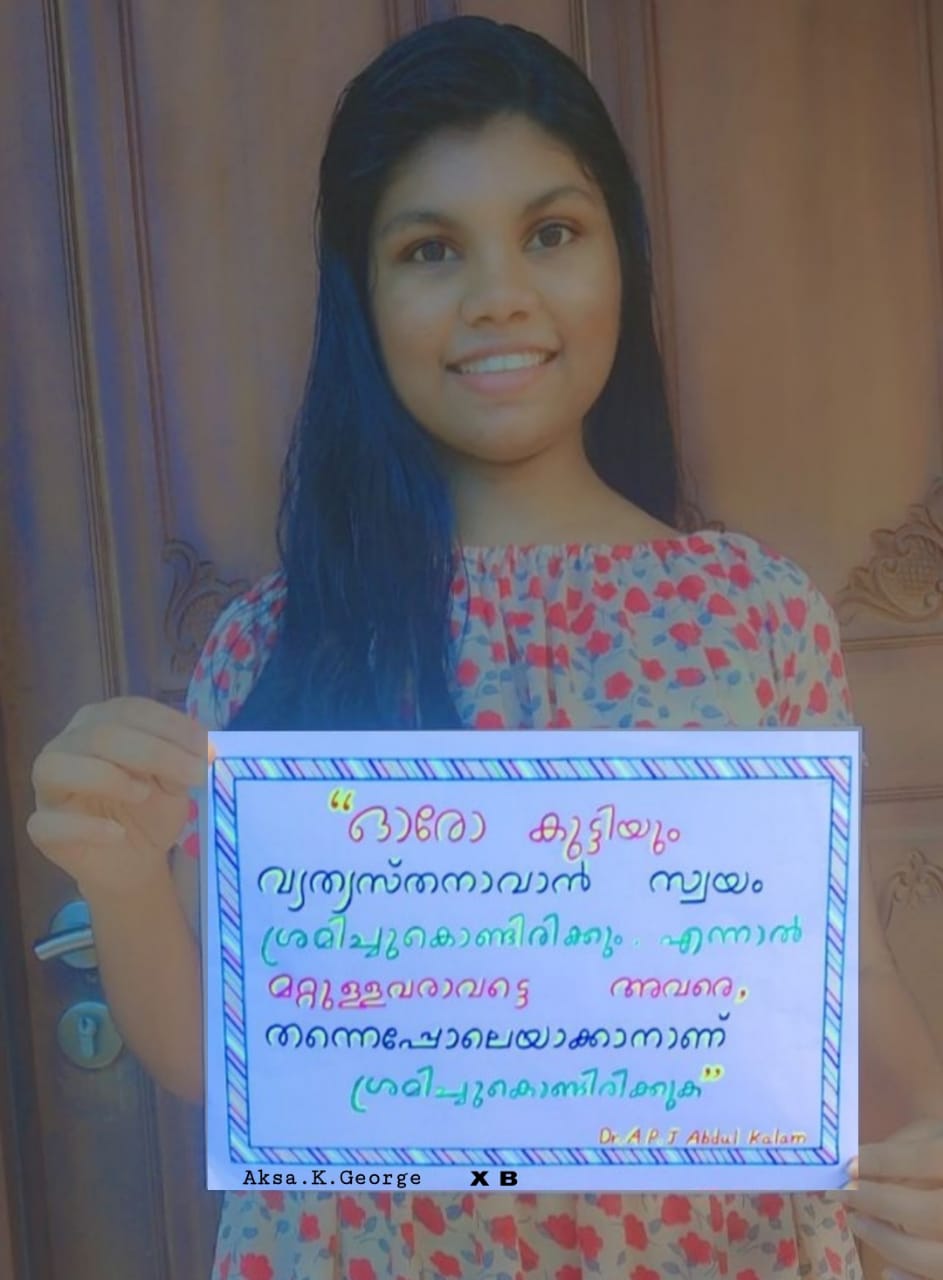 “ഓരോ കുട്ടിയും
വ്യത്യസ്തനാവാൻ സ്വയം
ശ്രമിച്ചുകൊണ്ടിരിക്കും. എന്നാൽ
മറ്റുള്ളവരാവട്ടെ അവരെ,
തന്നെപ്പോലെയാക്കാനാണ്
ശ്രമിച്ചുകൊണ്ടിരിക്കുക”
Dr. A. P. J Abdul Kalam
Aksa.K.George X B